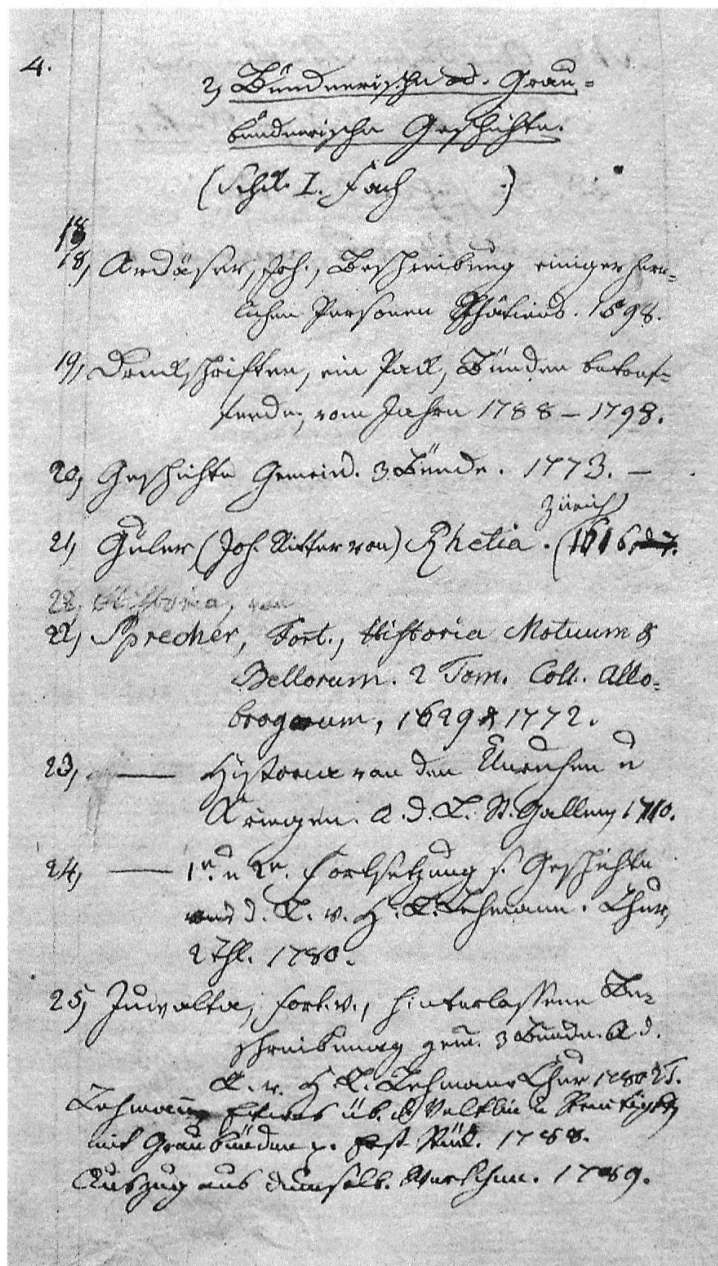 4.
2, Bündnerische od. Grau-
bündnerische Geschichte.
(Schr. I. Fach .)
18
18, Ardüser, Joh., Beschreibung einiger herr-
lichen Personen Rhätiens. 1598.
19, Druckschriften, ein Pack, Bünden betref-
fende, vom Jahre 1788 – 1798.
20, Geschichte Gemeind. 3 Bünde. 1773. –
Zürich
21, Guler (Joh. Ritter von) Rhetia. (1616.
22, Historia, von
22, Sprecher, Fort., Historia Motuum &
Bellorum. 2 Tom. Coll. Allo-
brogorum, 1629 & 1772.
23, —— Historie von den Unruhen u
Kriegen. A. d. L. St. Gallen, 1710.
24, —— 1e. u 2e. Fortsetzung s. Geschichte
aus d. L. v. H. L. Lehmann. Chur,
2 Thl. 1780.
25, Juvalta, Fort. v., hinterlassene Be-
schreibung gem. 3 Bünde. A d.
L. v. H. L. Lehmann Chur 1780 2 T.
Lehmann Etwas üb. d. Veltlin u Streitigk
mit Graubünden p. 1788.
Auszug aus demselb. 1789.